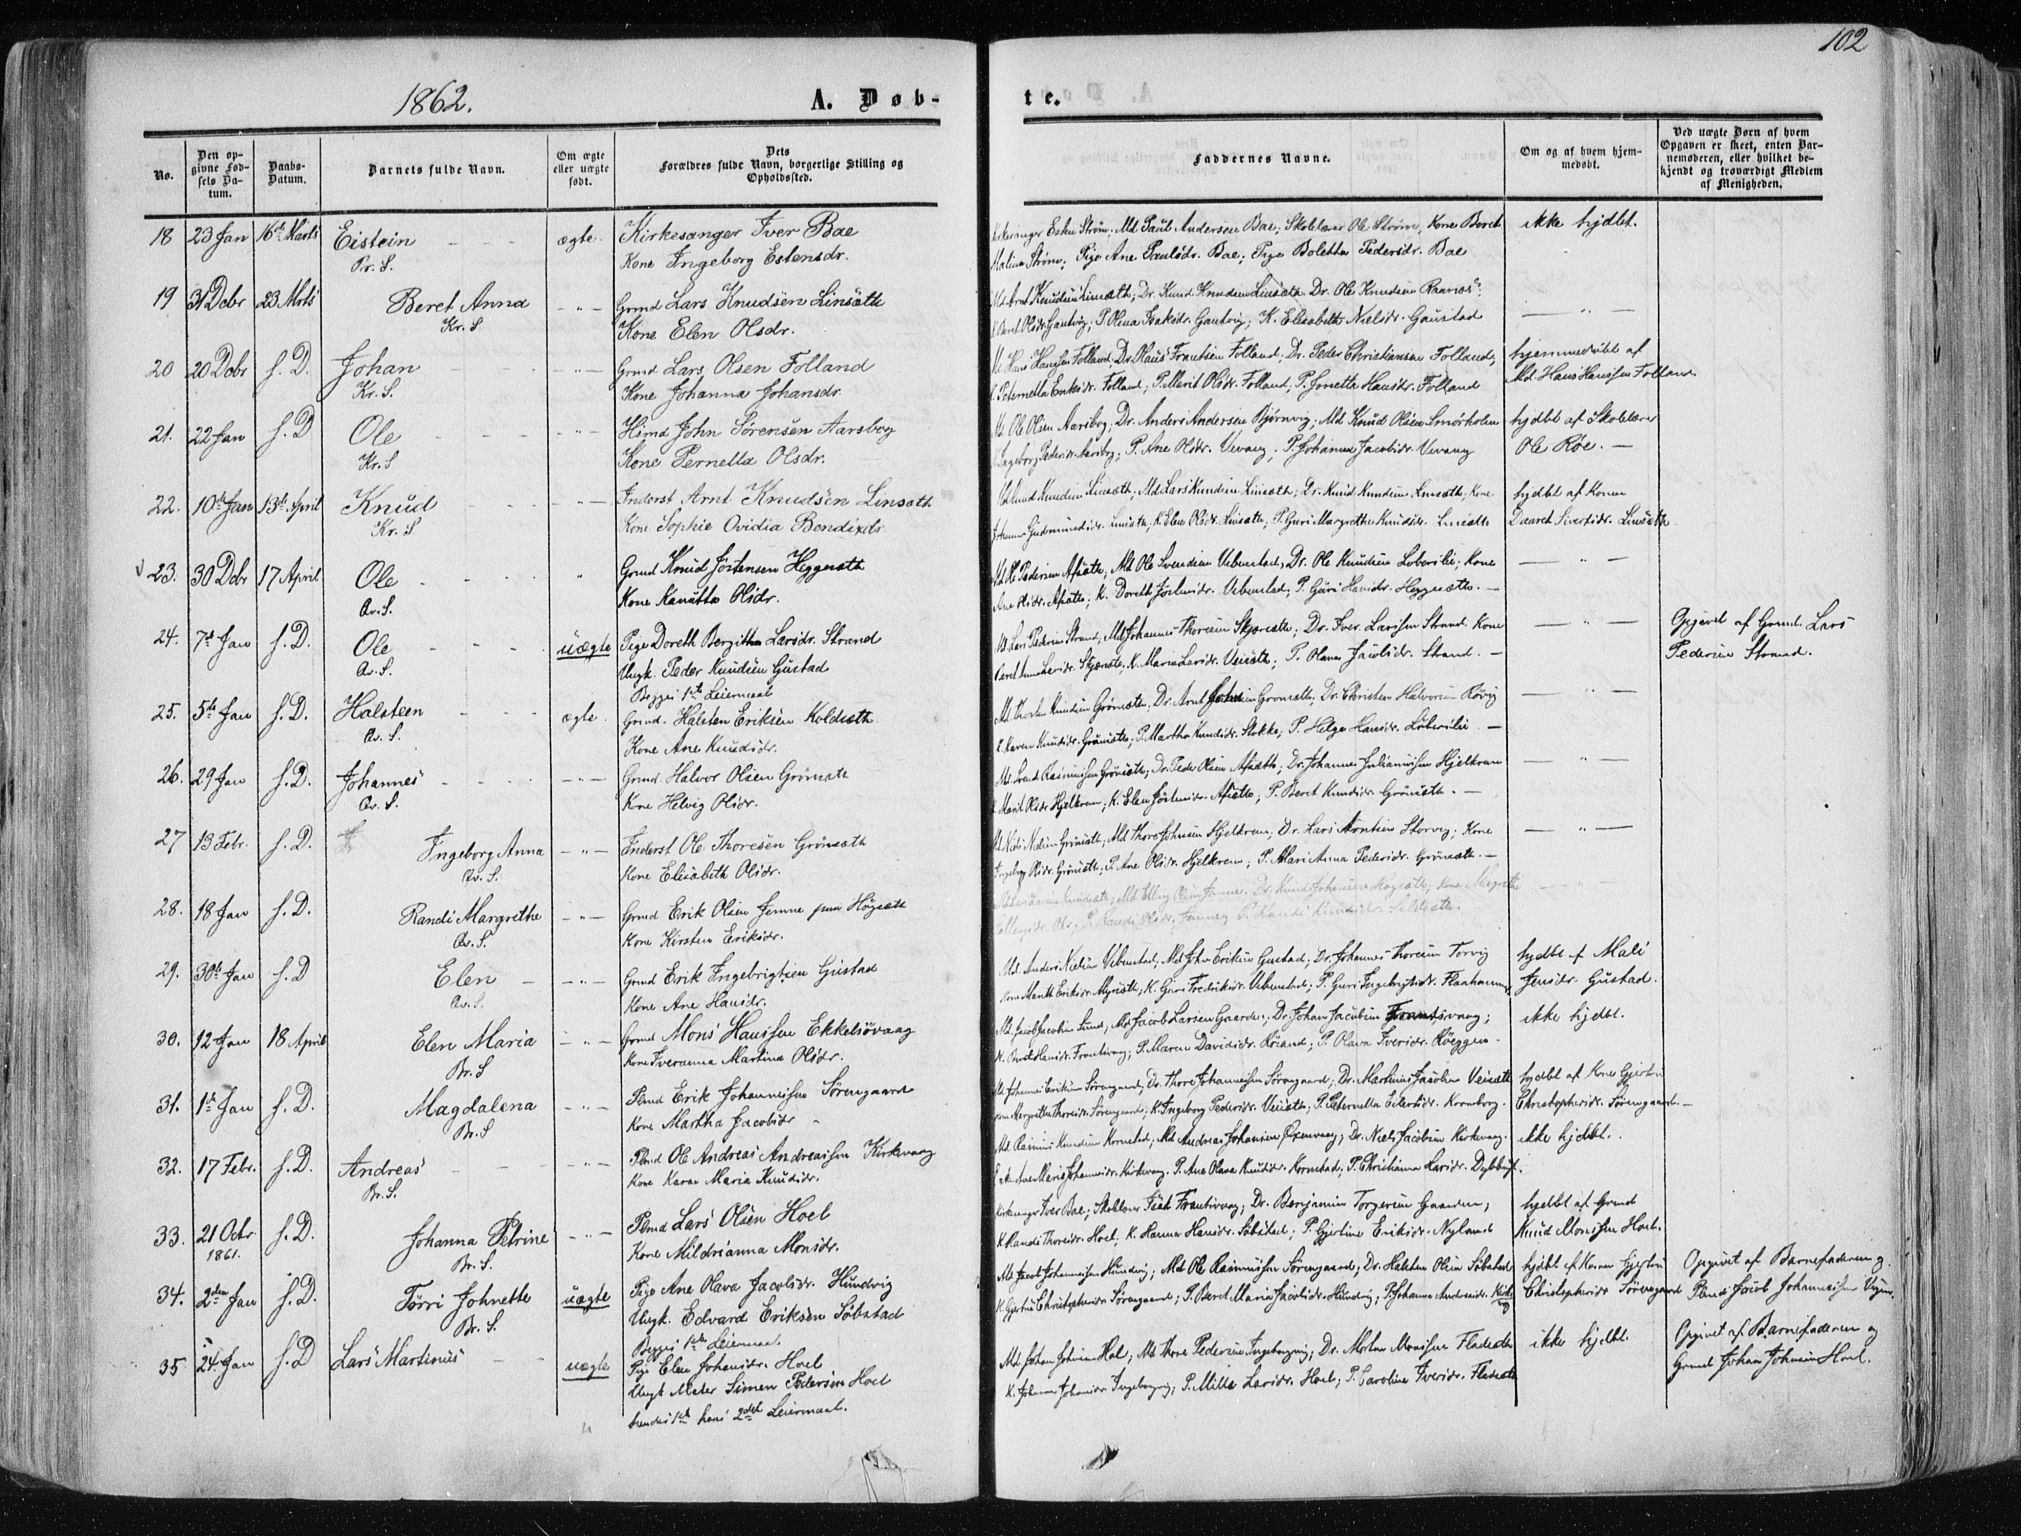 102
1862.
A. Døb-
te.
No.
Den op-
givne Fød-
sels Da-
tum.
Daabs-
Datum.
Barnets fulde Navn.
Om ægte
eller uægte
født.
Dets
Forældres fulde Navn, borgerlige Stilling og
Opholdssted.
Faddernes Navne.
Om og af hvem hjem-
medøbt.
Ved uægte Børn af hvem
Opgaven er skeet, enten Bar-
nemoderen, eller hvilket be-
kjendt og troværdigt Medlem
af Menigheden.
18 23 Jan 16de Marts Eistein ægte. Kirkesanger Iver Bae
Kone Ingeborg Estensdr.
Kr. S.
Esten Strøm, Md Paul Andersen Bae; Skolelærer Ole Strøm, Kone Beret
Malina Strøm; Pige Ane Paulsdr. Bae; Pige Boletta Pedersdr. Bae
ikke hjdbt.
19 31 Dcbr 23 Marts Beret Anna — " — Grmd Lars Knudsen Linsæth
Kr. S
Kone Elen Olsdr.
Md Arnt Knudsen Linsæth; Dr. Knud Knudsen Linsæth Dr. Ole Knudsen Raanæs;
K. Beret Olsdr. Gautvig; P. Olina Isaksdr. Gautvig; K. Elisabeth Nielsdr. Gaustad
— " —
20 20 Dcbr s. D. Johan — " — Grmd Lars Olsen Folland
Kr. S.
Kone Johanna Johansdr.
Md Hans Hansen Folland; Dr. Olaus Frantsen Folland; Dr. Peder Christiansen Folland;
K. Peternella Eriksdr. Folland; P. Marit Olsdr. Folland; P. Jonetta Hansdr. Folland
hjemmedøbt af
Md. Hans Hansen Folland
21. 22 Jan s. D Ole — " — Hsmd John Sørensen Aarsbog
Kr. S
Kone Pernella Olsdr.
Md Ole Olsen Aarsbog; Dr. Anders Andersen Bjørnvig; Md Knud Olsen Smørholm
K. Ingeborg Pedersdr. Aarsbog; P. Ane Olsdr. Vevang; P. Johanna Jacobsdr. Vevang
hjdbt af Skolelærer
Ole Røe. —
22. 10de Jan 13de April Knud — " — Inderst Arnt Knudsen Linsæth
Kr. S.
Kone Sophie Ovidia Bendixdr
Md Knud Knudsen Linsæth; Md Lars Knudsen Linsæth; Dr. Knud Knudsen Linsæth; Kone
Johanna Gudmundsdr. Linsæth; K. Elen Olsdr. Linsæth; P. Guri Margrethe Knudsdr. Linsæth
hjdbt af Konen
Daaret Sivertsdr. Linsæth
23. 30 Dcbr 17 April Ole " Grmd Knud Jostensen Heggesæth
Qv. S.
Kone Kanutta Olsdr.
Pedersen Apsæth; Md Ole Svendsen Uebenstad; Dr. Ole Knudsen Loberslie; Kone
Ane Olsdr. Apsæth; K. Doreth Josteinsdr. Uebenstad; P. Guri Hansdr. Heggesæth. —
— " —
24. 7de Jan s. D. Ole uægte Pige Doreth Bergitta Larsdr. Strand
Qv. S.
Ungk. Peder Knudsen Gustad
Begges 1ste Leiermaal
Md Lars Pedersen Strand, Md Johannes Thoresen Skjørsæth; Dr. Iver Larssen Strand. Kone
Beret Anna Larsdr. Skjørsæth; K. Maria Larsdr. Veisæth; P. Olava Jacobsdr. Strand. —
— " —
Opgivet af Grmd. Lars
Pedersen Strand.
25. 5te Jan s. D. Halsteen ægte. Grmd. Halsten Eriksen Koldsæth
Qv. S.
Kone Ane Knudsdr.
Md. Thosten Knudsen Grønsæth; Dr. Arnt Johnsen Grønsæth; Dr. Christen Halvorsen Røvig
K. Karen Knudsdr. Grønsæth; P. Martha Knudsdr. Stokke; P. Helga Hansdr. Løberslie —
— " —
26. 29 Jan s. D. Johannes — " — Grmd. Halvor Olsen Grønsæth
Qv. S.
Kone Helvig Olsdr.
Rasmussen Grønsæth; Dr. Peder Olsen Apsæth; Dr. Johannes Julianussen Hjelkrem
K. Marit Olsdr. Hjelkrem; K. Elen Josteinsdr. Apsæth; P. Beret Knudsdr. Grønsæth. —
— " —
27 13 Febr. s. D. Ingeborg Anna — " — Inderst Ole Thoresen Grønsæth
Qv. S.
Kone Elisabeth Olsdr.
Md. Nils Nilsen Grønsæth; Md Thore Johnsen Hjelkrem; Dr. Lars Arntsen Storvig; Kone
Ingeborg Olsdr. Grønsæth; P. Ane Olsdr. Hjelkrem; P. Mari Anna Pedersdr. Grønsæth. —
— " —
28. 18 Jan s. D. Randi Margrethe — " — Grmd Erik Olsen Jemne paa Høgsæth
Qv. S.
Kone Kirsten Eriksdr.
Knudsæth; Md Elling Olsen Jemne; Dr. Knud Johansen Høgsæth; Kone Magrethe
— " —
29. 30te Jan s. D Elen — " — Grmd Erik Ingebrigtsen Gustad
Qv. S.
Kone Ane Hansdr.
Md. Anders Nielsen Uebenstad; Md John Eriksen Gustad; Dr. Johannes Thoresen Torvig
Kone Marith Eriksdr. Myrsæth; K. Guri Fredriksdr. Uebenstad; P. Guri Ingebrigtsdr. Flaahammer
hjdbt af Mali
Jensdr. Gustad.
30. 12 Jan 18 April Elen Maria — " — Grmd Mons Hansen Ekkelsøvaag
Br. S
Kone Iveranna Martina Olsdr.
Md. Jacob Jacobsen Sund; Md Jacob Larsen Gaarden; Dr. Johan Jacobsen Frantsvaag;
K. Beret Hansdr. Frantsvaag; P. Maren Davidsdr. Røsand; P. Olava Iversdr. Røeggen. —
ikke hjdbt.
31. 1ste Jan s. D. Magdalena — " — Plmd Erik Johannessen Sørengaard
Br. S
Kone Martha Jacobsdr
Md Johannes Eriksen Sørengaard; Dr. Thore Johannessen Sørengaard; Dr. Marthinus Jacobsen Veisæth
Kone Margrethe Thoresdr. Sørengaard; K. Ingeborg Pedersdr. Veisæth; P. Peternella Eilertsdr. Kronborg.
hjdbt af Kone Gjertru
Christophersdr. Sørengaard. —
32. 17 Febr. s. D. Andreas — " — Plmd Ole Andreas Andreassen Kirkevaag
Br. S.
Kone Karen Maria Knudsdr.
Md Rasmus Knudsen Kornstad; Md Andreas Johansen Øxenvaag; Dr. Niels Jacobsen Kirkevaag.
Ane Maria Johannesdr. Kirkevaag. P. Ane Olava Knudsdr. Kornstad; P. Christianna Larsdr. Dybbugt.
ikke hjdbt.
33. 21 Octr
1861. s. D. Johanna Petrine — " — Plmd Lars Olsen Hoel
Br. S.
Kone Mildrianna Monsdr.
Kirkesanger Iver Bae; Skolelærer Siet Frantsvaag; Dr. Benjamin Torgersen Gaarden;
K Randi Thoresdr. Hoel; K. Hanna Hansdr. Søbstad; P. Gjertine Eriksdr. Nyland
hjdbt af Grmd
Knud Monssen Hoel.
34. 2den Jan s. D. Tørri Johnetta uægte Pige Ane Olava Jacobsdr. Hundvig
Br. S.
Ungk. Edvard Eriksen Søbstad
Begges 1ste Leiermaal
Md Jacob Johannessen Hundvig; Md Ole Rasmussen Sørengaard; Dr. Halsten Olsen Søbstad
K. Gjertru Christophersdr. Sørengaard; P. Beret Maria Jacobsdr. Hundvig; P. Johanna Andreasdr.
hjdbt af Konen Gjertru
Christophersdr Sørengaard
Opgivet af Barnefaderen og
Plmd Jacob Johannessen
35 24 Jan s. D Lars Martinus uægte Pige Elen Johansdr. Hoel
Ungk Mater Simon Pedersen Hoel
hendes 1ste hans 2det Leiermaal.
Md. Johan Johnsen Hoel; Md Thore Pedersen Ingeborgvig; Dr. Morten Monssen Fladsæth
K. Johanna Johansdr. Ingeborgvig; P. Milla Larsdr. Hoel; P. Carolina Iversdr. Fladsæth
ikke hjdbt.
Opgivet af Barnefaderen og
Grmd Johan Johnsen Hoel.